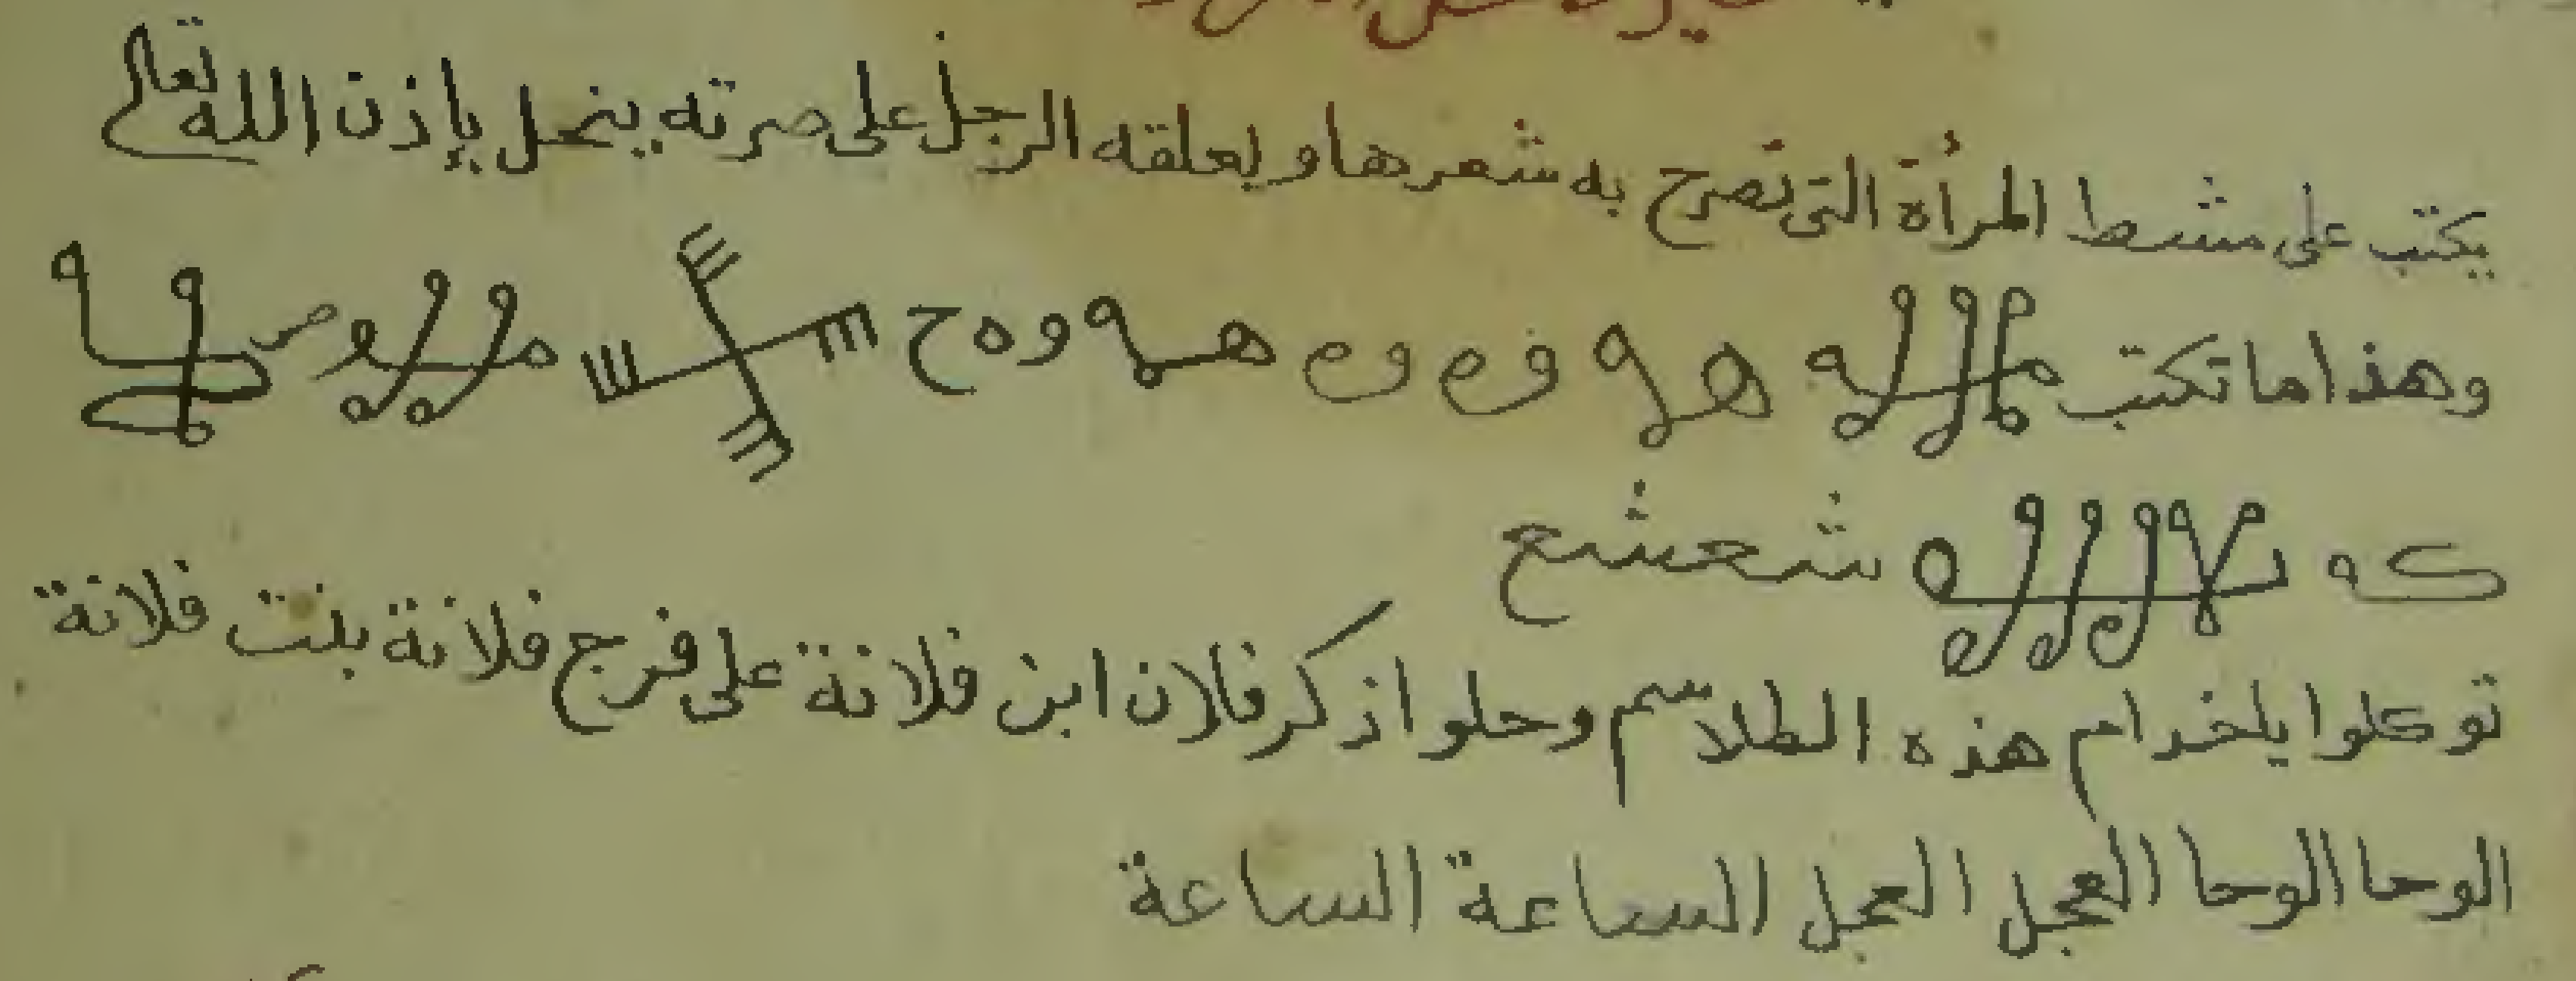 يكتب على مشط المرأة التى تصرح به شعرها ويعلقه الرجل على صرته ينحل بإذن الله تعالى
وهذا ما تكتب
شعشع
توكلوا يا خدام هذه الطلاسم وحلوا ذكر فلان ابن فلانة على فرج فلانة بنت فلانة
الوحا الوحا العجل العجل الساعة الساعة